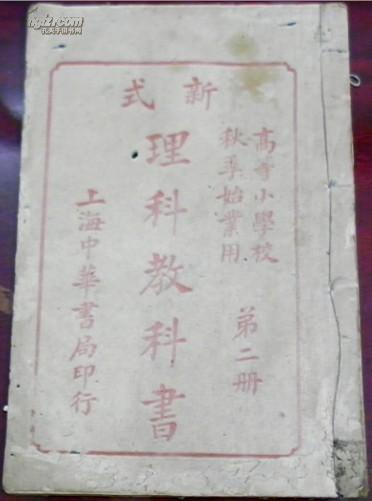 新式
高等小學校
秋季始業用
第二册
理科教科書
上海中華書局印行
孔夫子旧书网